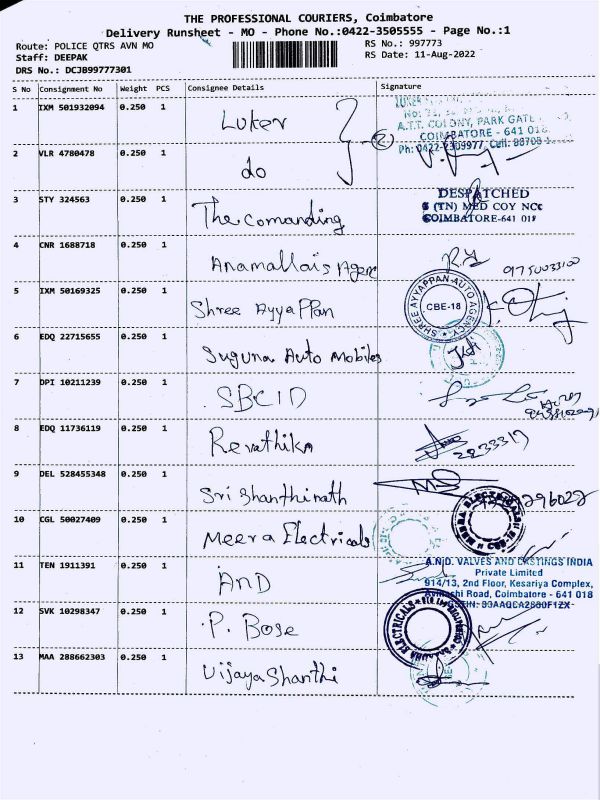 THE PROFESSIONAL COURIERS, Coimbatore
Delivery Runsheet - MO - Phone No.:0422-3505555 - Page No.:1
Route: POLICE QTRS AVN MO
RS No.: 997773
Staff: DEEPAK
RS Date: 11-Aug-2022
DRS No.: DCJB99777301
S No Consignment No Weight PCS Consignee Details Signature
1 IXM 501932094 0.250 1 Luker
A.T.T. COLONY, PARK GATE
COIMBATORE - 641 018
Ph: 0422-2309977, Cell: 98708
2 VLR 4780478 0.250 1 do
3 STY 324563 0.250 1 The Comanding
DESPATCHED
5 (TN) MED COY NCC
COIMBATORE-641 018
4 CNR 1688718 0.250 1 Anamallais Agenc
9750033100
5 IXM 50169325 0.250 1 Shree Ayyappan
SHREE AYYAPPAN AUTO AGENCY
CBE-18
6 EDQ 22715655 0.250 1 Suguna Auto Mobiles
7 DPI 10211239 0.250 1 SBCID
8 EDQ 11736119 0.250 1 Revathika
2233319
9 DEL 528455348 0.250 1 Sri Shanthinath
10 CGL 50027409 0.250 1 Meera Electricals
CBE-18
11 TEN 1911391 0.250 1 AND
A.N.D. VALVES AND CASTINGS INDIA
Private Limited
914/13, 2nd Floor, Kesariya Complex,
Avinashi Road, Coimbatore - 641 018
12 SVK 10298347 0.250 1 P. Bose
ELECTRICALS
13 MAA 288662303 0.250 1 Vijaya Shanthi